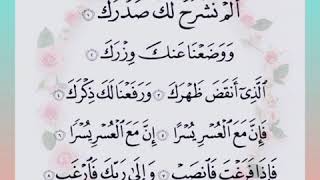 أَلَمْ نَشْرَحْ لَكَ صَدْرَكَ ١
وَوَضَعْنَا عَنكَ وِزْرَكَ ٢
ٱلَّذِىٓ أَنقَضَ ظَهْرَكَ ٣ وَرَفَعْنَا لَكَ ذِكْرَكَ ٤
فَإِنَّ مَعَ ٱلْعُسْرِ يُسْرًا ٥ إِنَّ مَعَ ٱلْعُسْرِ يُسْرًا ٦
فَإِذَا فَرَغْتَ فَٱنصَبْ ٧ وَإِلَىٰ رَبِّكَ فَٱرْغَب